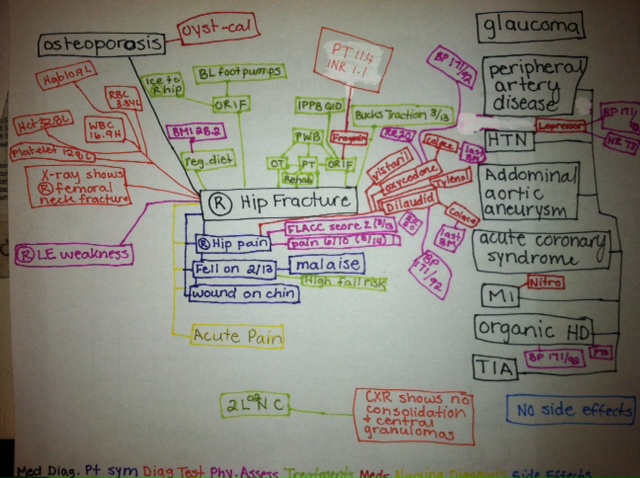 osteoporosis
oyst-cal
Ice to
R hip
BL foot pumps
ORIF
BMI 28.2
reg. diet
RBC
WBC
16.9H
Platelet 128L
X-ray shows
R femoral
neck fracture
R LE weakness
PT 11.4
INR 1.1
IPPB QID
Bucks Traction 3/13
PWB
OT
PT
ORIF
Rehab
RR20
vistaril
oxycodone
Dilaudid
Colace
last
BM
Tylenol
Colace
last
BM
RR
20
BP
171/92
BP 171/92
R Hip Fracture
R Hip pain
FLACC score 2 (3/13)
pain 6/10 (3/14)
Fell on 2/13
malaise
High fall risk
wound on chin
Acute Pain
glaucoma
peripheral
artery
disease
Lopressor
BP 171/
HR 73
HTN
Addominal
aortic
aneurysm
acute coronary
syndrome
Nitro
MI
organic HD
TIA
BP 171/92
2L O2 NC
CXR shows no
consolidation
+ central
granulomas
No side effects
Med Diag. Pt sym Diag Test Phy. Assess Treatments Meds Nursing Diagnosis Side Effects